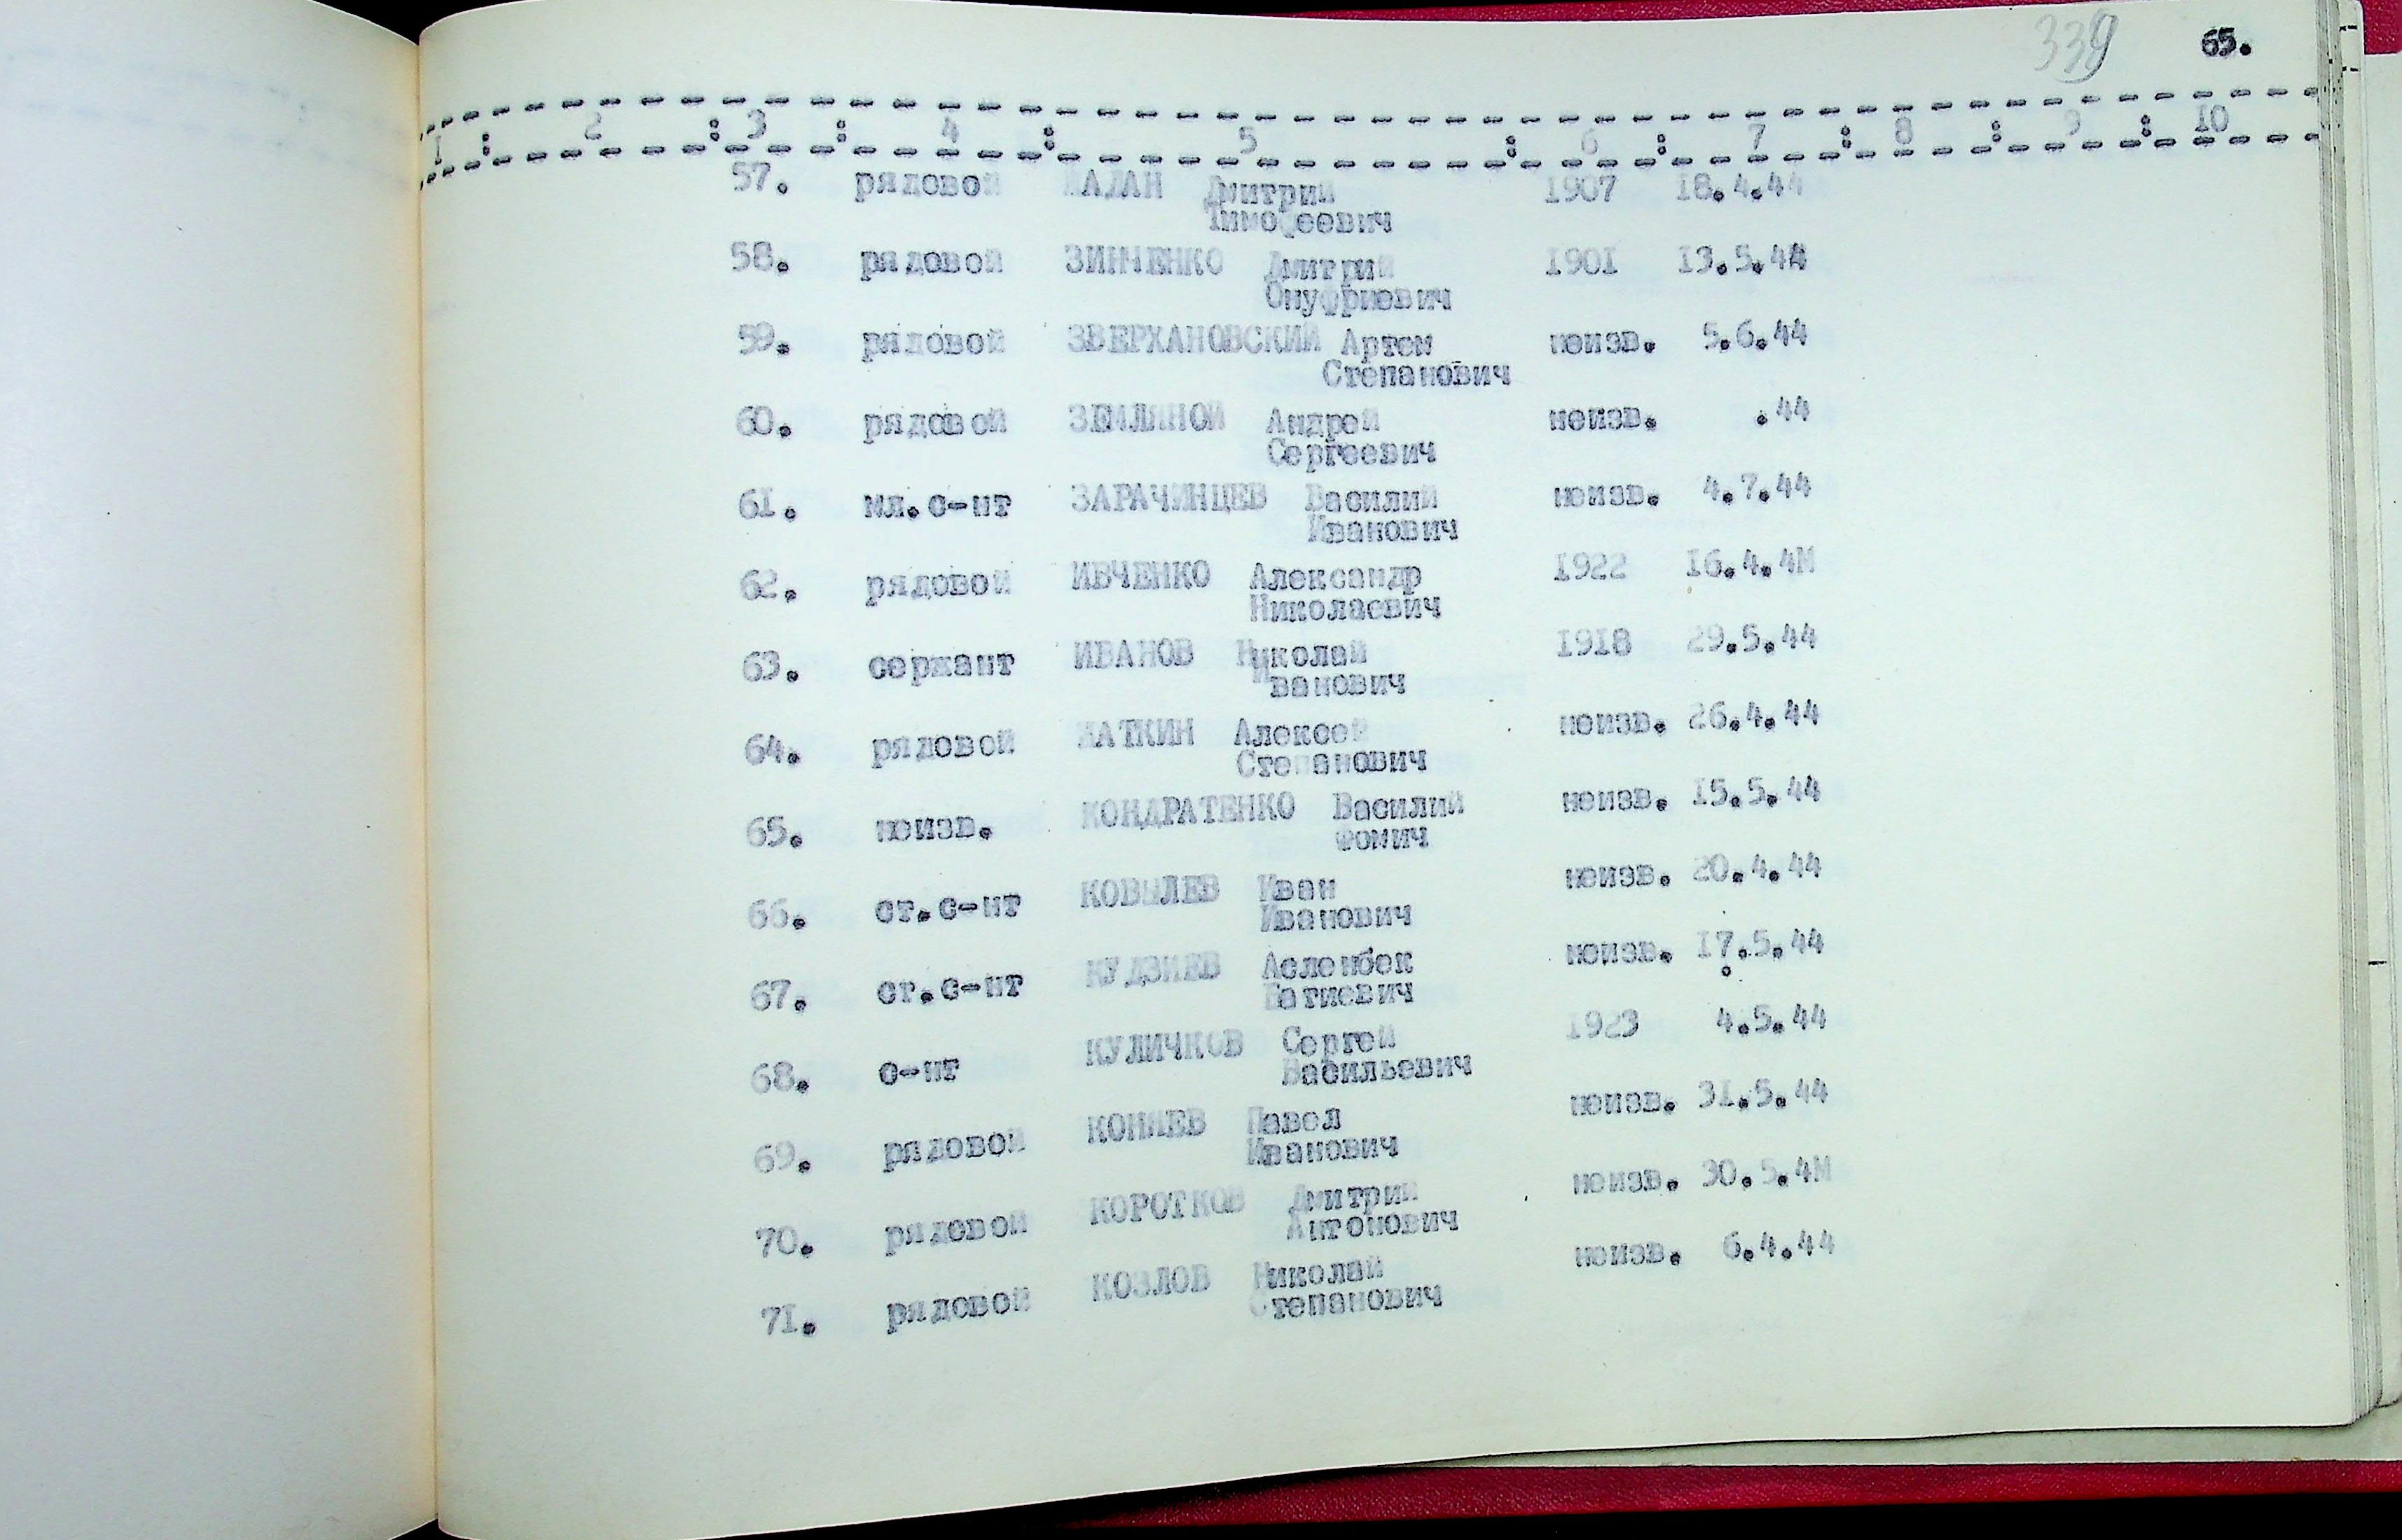 339 65.
1 : 2 : 3 : 4 : 5 : 6 : 7 : 8 : 9 : 10
57. рядовой Дмитрий 1907 18.4.44
Тимофеевич
58. рядовой ЗИНЧЕНКО Дмитрий 1901 13.5.44
Онуфриевич
59. рядовой ЗВЕРХАНОВСКИЙ Артем неизв. 5.6.44
Степанович
60. рядовой ЗЕМЛЯНОЙ Андрей неизв. .44
Сергеевич
61. мл.с-нт ЗАРАЧИНЦЕВ Василий неизв. 4.7.44
Иванович
62. рядовой ИВЧЕНКО Александр 1922 16.4.4М
Николаевич
63. сержант ИВАНОВ Николай 1918 29.5.44
Иванович
64. рядовой Алексей неизв. 26.4.44
Степанович
65. неизв. КОНДРАТЕНКО Василий неизв. 15.5.44
Фомич
66. ст.с-нт КОВЫЛЕВ Иван неизв. 20.4.44
Иванович
67. ст.с-нт КУДЗИЕВ Асленбек неизв. 17.5.44
68. с-нт КУЛИЧКОВ Сергей 1923 4.5.44
Васильевич
69. рядовой Павел неизв. 31.5.44
Иванович
70. рядовой КОРОТКОВ Дмитрий неизв. 30.5.4М
Антонович
71. рядовой КОЗЛОВ Николай неизв. 6.4.44
Степанович